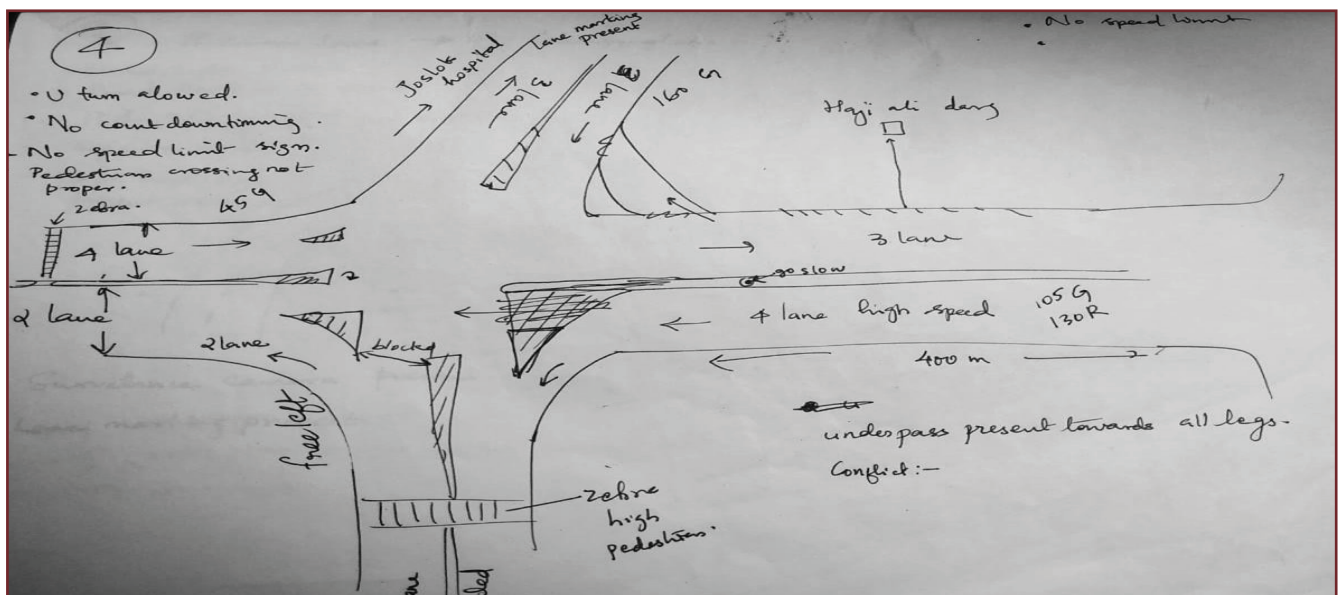 4
• U turn alowed.
• No countdown timming.
- No speed limit sign.
Pedestrian crossing not
proper.
zebra.
45 G
4 lane
2 lane
2 lane
free left
blocked
Joslok
hospital
lane marking
present
3 lane
lane
160 G
• No speed limit
•
Haji ali darg
3 lane
go slow
4 lane high speed
105 G
130 R
400 m
underpass present towards all legs.
Conflict:-
Zebra
high
pedestrians.